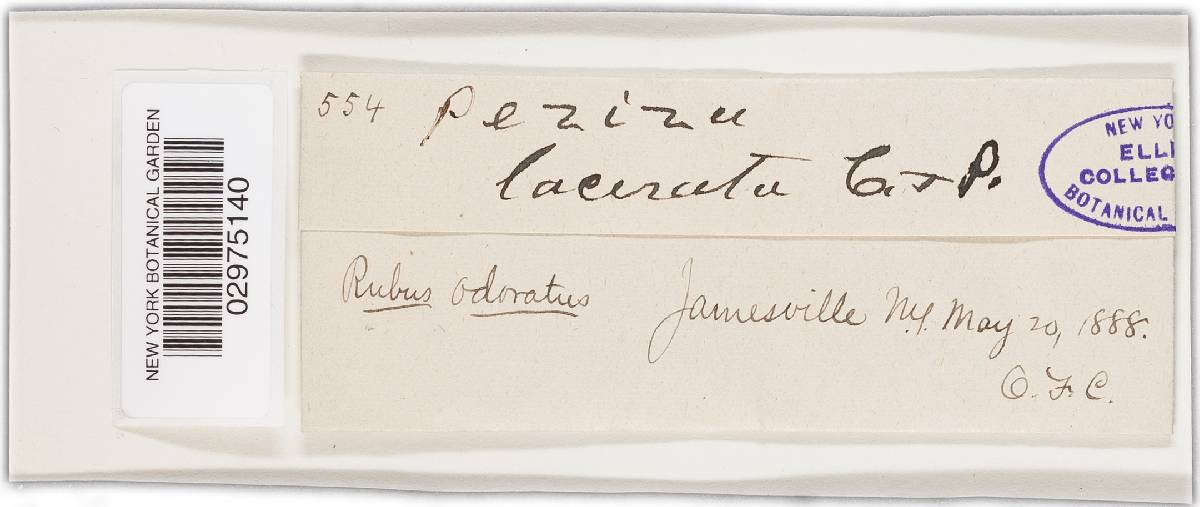 NEW YORK BOTANICAL GARDEN
02975140
554 Peziza
lacerata C & P.
NEW YO
ELLI
COLLEC
BOTANICAL
Rubus odoratus Jamesville N.Y. May 20, 1888.
O. F. C.